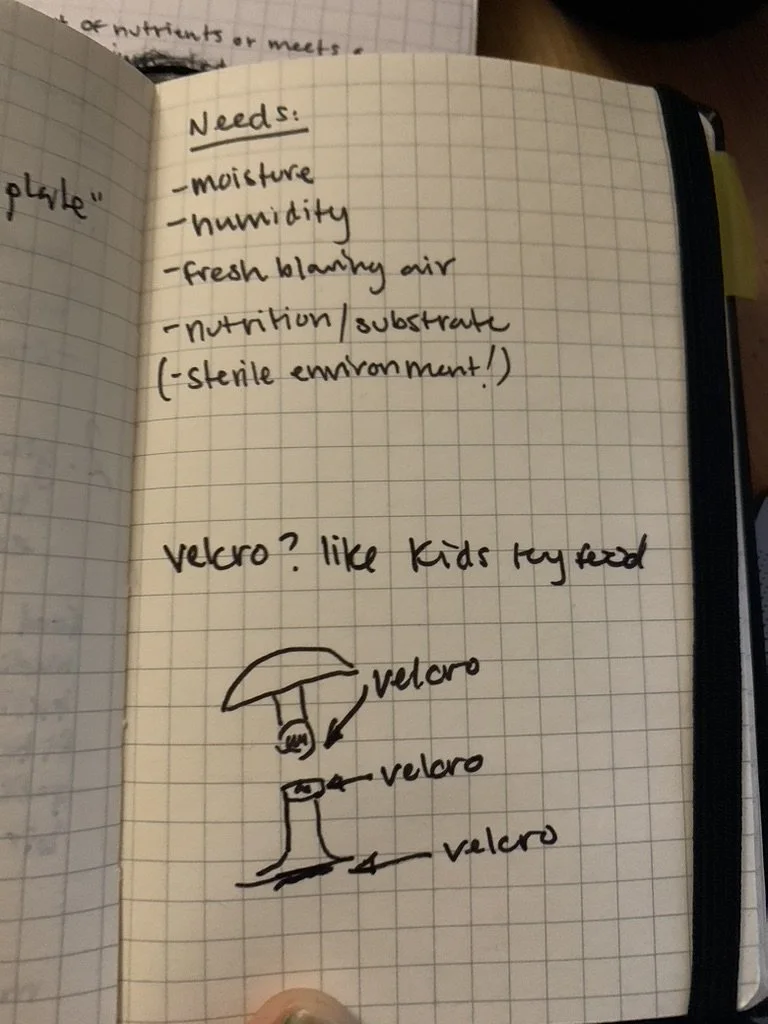 of nutrients or meets
plate"
Needs:
-moisture
-humidity
-fresh blowing air
-nutrition/substrate
(-sterile environment!)
velcro? like kids toy food
velcro
velcro
velcro